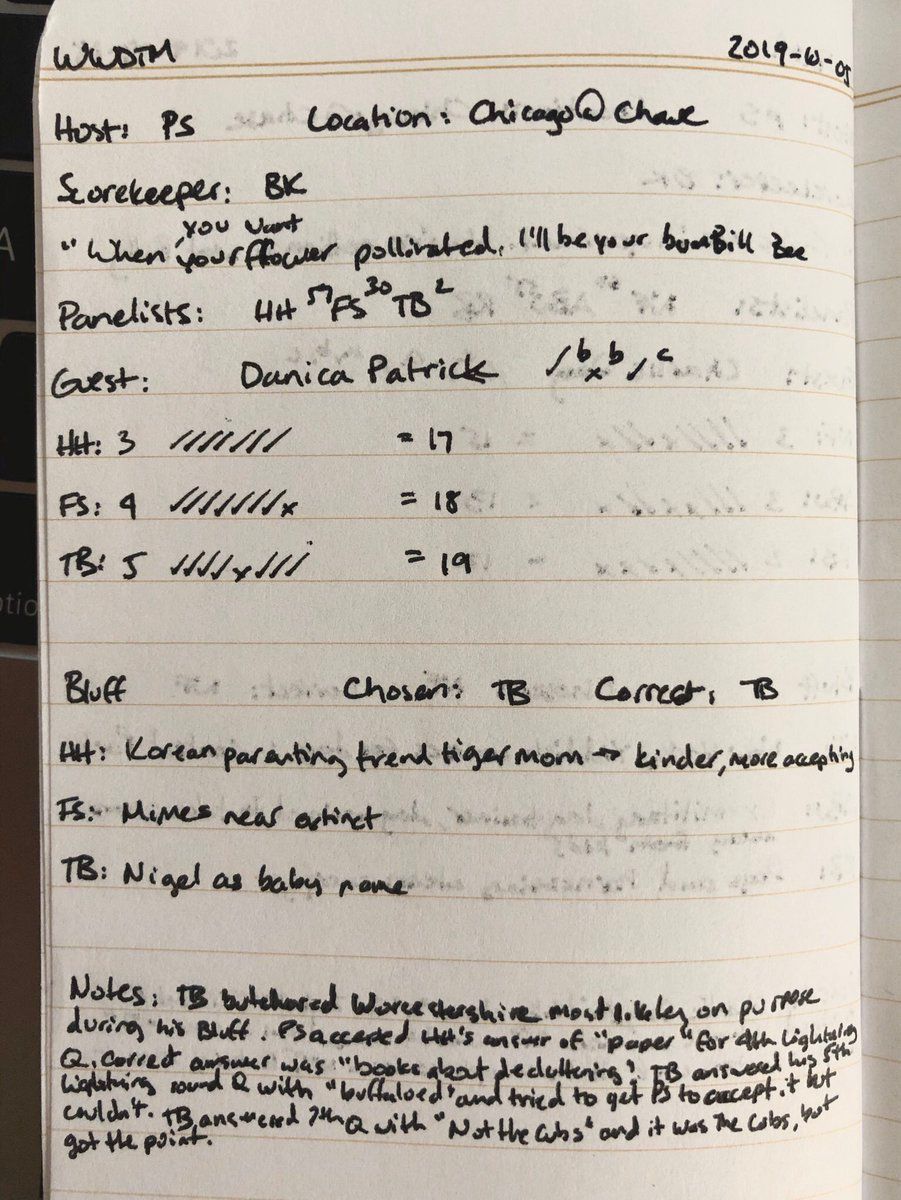 WWDTM 2019-10-05
Host: PS Location: Chicago@Chase
Scorekeeper: BK
you want
"When your fflower pollinated, I'll be your bumBill Bee
Panelists: HH 57 FS 30 TB 2
Guest: Danica Patrick ✓b xb ✓c
HH: 3 ✓✓✓✓✓✓✓ = 17
FS: 4 ✓✓✓✓✓✓✓x = 18
TB: 5 ✓✓✓✓x✓✓✓ = 19
Bluff Chosen: TB Correct: TB
HH: Korean parenting trend tiger mom → kinder, more accepting
FS: Mimes near extinct
TB: Nigel as baby name
Notes: TB butchered Worcestershire most likely on purpose
during his Bluff. PS accepted HH's answer of "paper" for 4th Lightning
Q. Correct answer was "books about decluttering". TB answered his 5th
lightning round Q with "buffaloed" and tried to get PS to accept it but
couldn't. TB answered 7th Q with "Not the Cubs" and it was The Cubs, but
got the point.
A
ptio